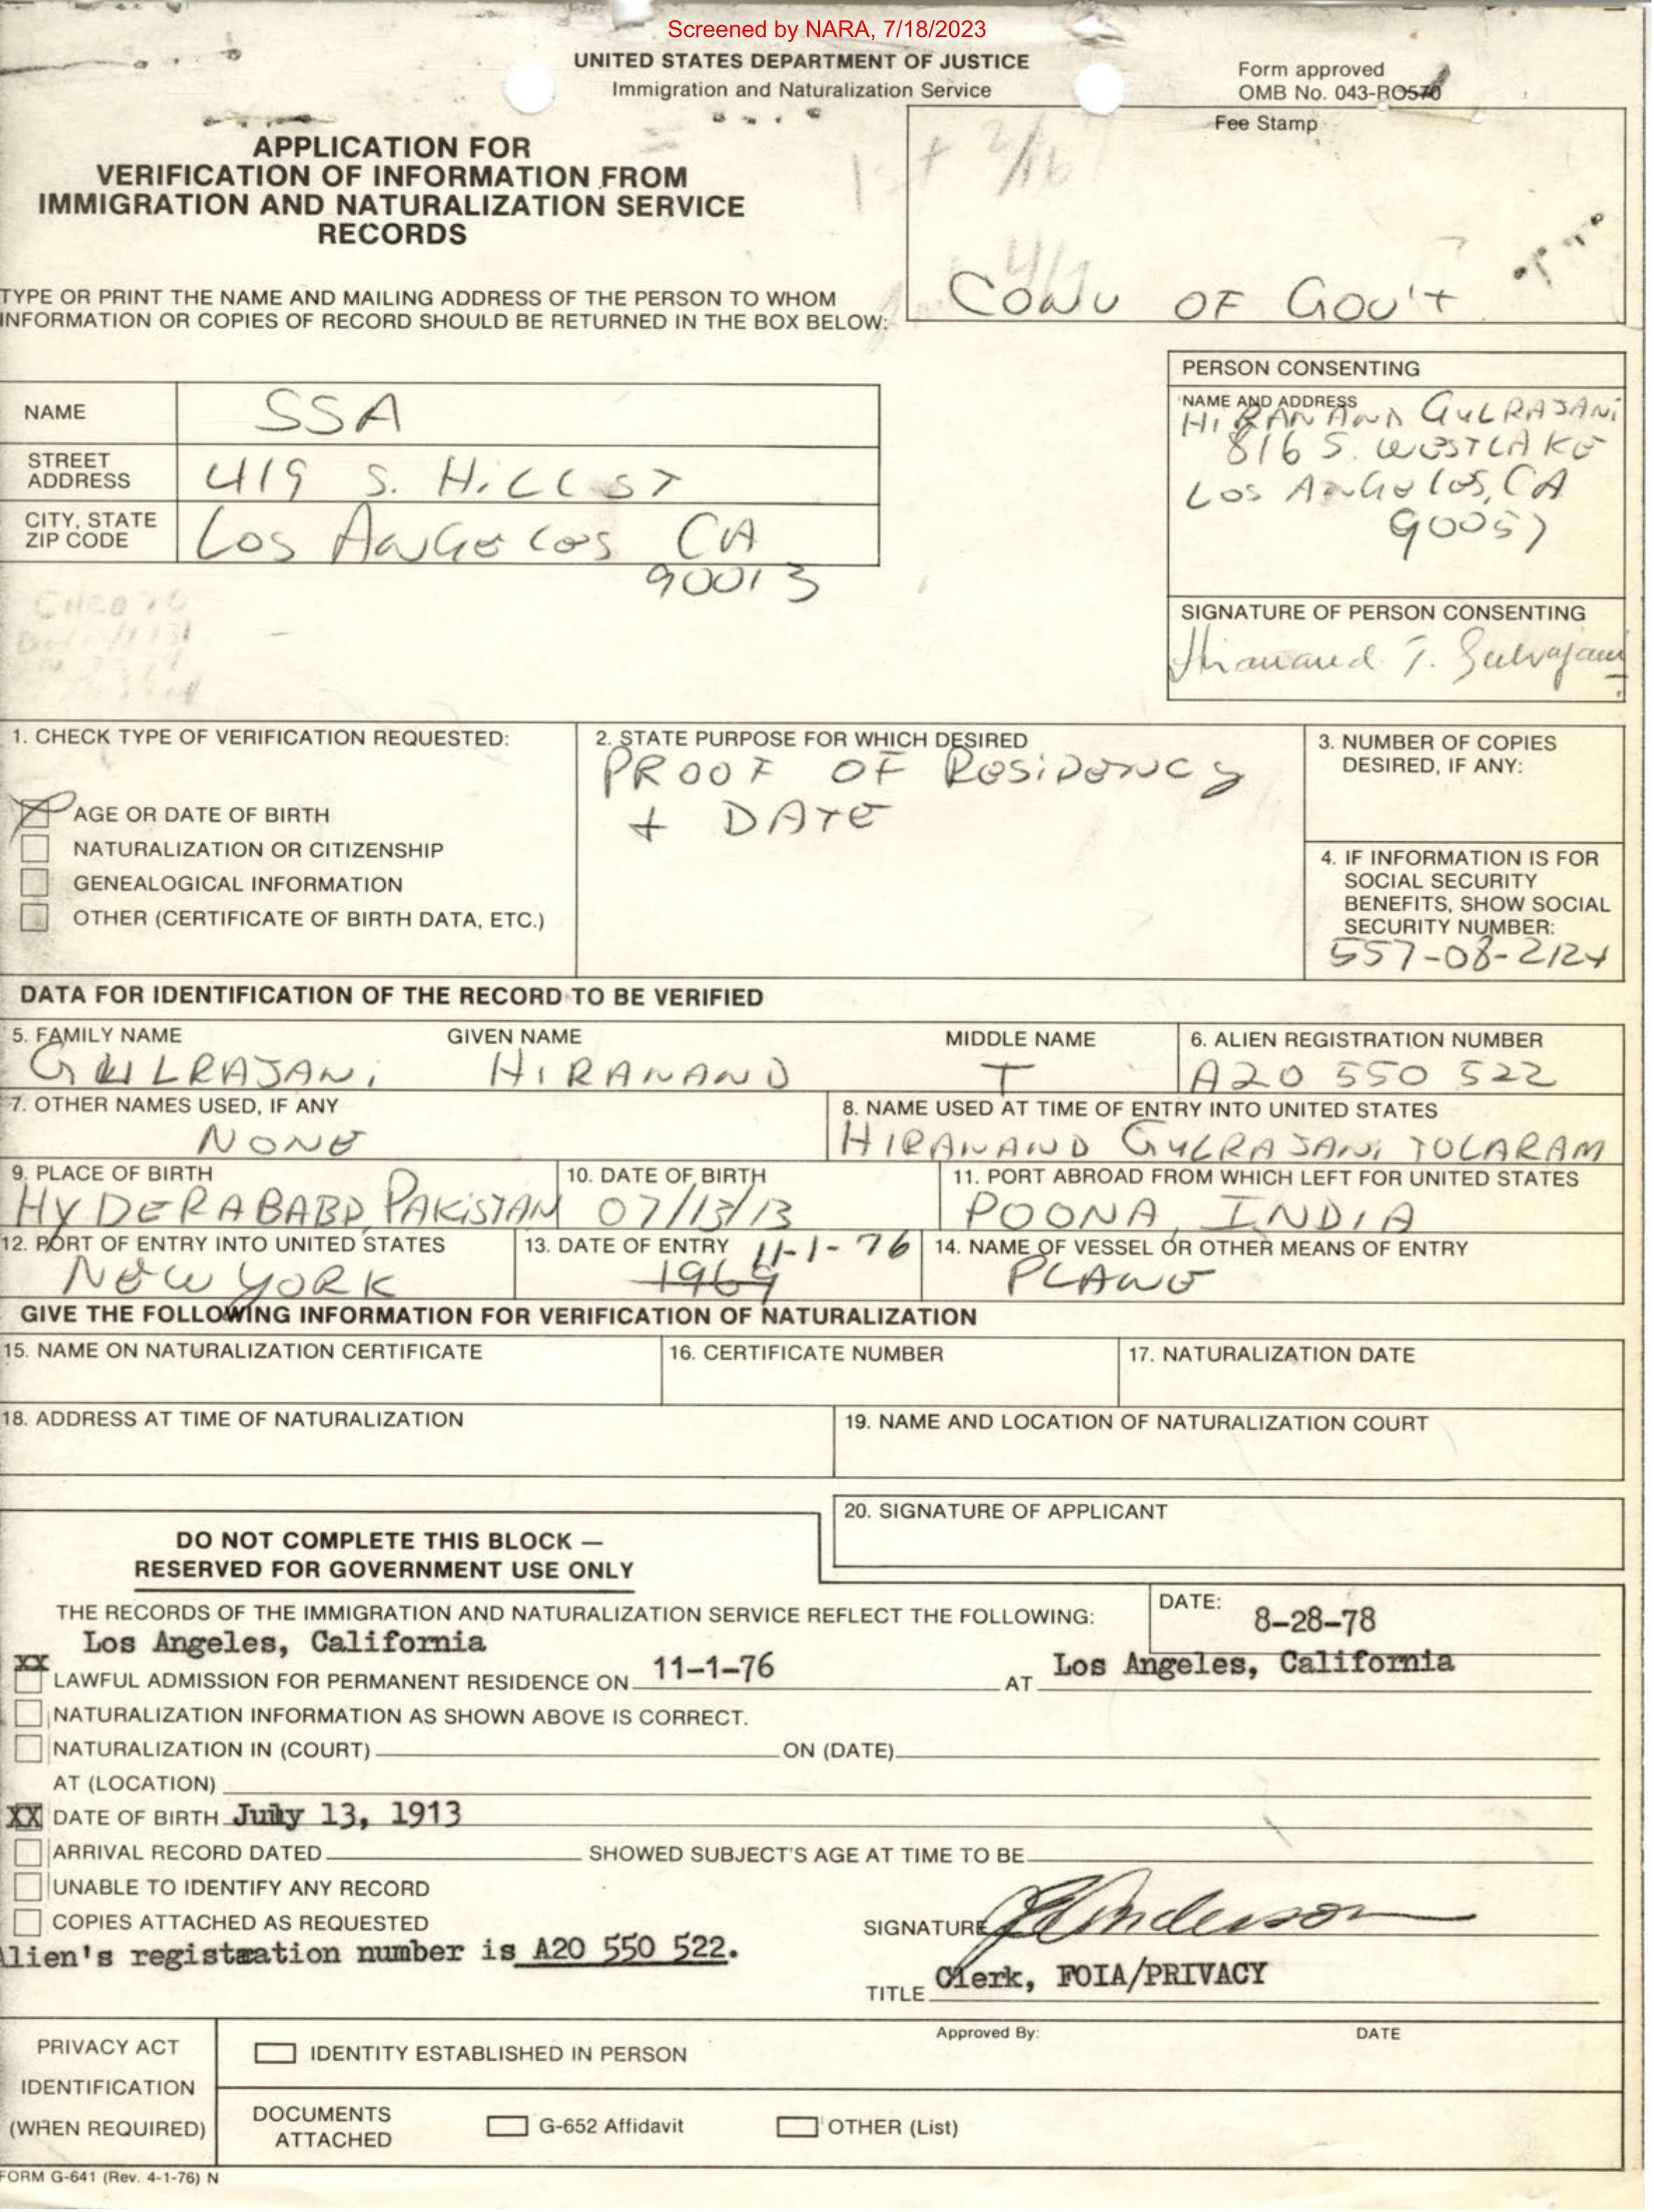 Screened by NARA, 7/18/2023
UNITED STATES DEPARTMENT OF JUSTICE
Immigration and Naturalization Service
Form approved
OMB No. 043-RO570
Fee Stamp
1st 2/16
APPLICATION FOR
VERIFICATION OF INFORMATION FROM
IMMIGRATION AND NATURALIZATION SERVICE
RECORDS
CONV OF GOV'T
TYPE OR PRINT THE NAME AND MAILING ADDRESS OF THE PERSON TO WHOM
INFORMATION OR COPIES OF RECORD SHOULD BE RETURNED IN THE BOX BELOW:
NAME SSA
STREET
ADDRESS 419 S. HILL ST
CITY, STATE
ZIP CODE LOS ANGELES CA
90013
PERSON CONSENTING
NAME AND ADDRESS
HIRANAND GULRAJANI
816 S. WESTLAKE
LOS ANGELES, CA
90057
SIGNATURE OF PERSON CONSENTING
Hiranand T. Gulrajani
1. CHECK TYPE OF VERIFICATION REQUESTED:
AGE OR DATE OF BIRTH
NATURALIZATION OR CITIZENSHIP
GENEALOGICAL INFORMATION
OTHER (CERTIFICATE OF BIRTH DATA, ETC.)
2. STATE PURPOSE FOR WHICH DESIRED
PROOF OF RESIDENCY
+ DATE
3. NUMBER OF COPIES
DESIRED, IF ANY:
4. IF INFORMATION IS FOR
SOCIAL SECURITY
BENEFITS, SHOW SOCIAL
SECURITY NUMBER:
557-08-2124
DATA FOR IDENTIFICATION OF THE RECORD TO BE VERIFIED
5. FAMILY NAME GIVEN NAME MIDDLE NAME
GULRAJANI HIRANAND T
6. ALIEN REGISTRATION NUMBER
A20 550 522
7. OTHER NAMES USED, IF ANY
NONE
8. NAME USED AT TIME OF ENTRY INTO UNITED STATES
HIRANAND GULRAJANI TOLARAM
9. PLACE OF BIRTH
HYDERABABD, PAKISTAN
10. DATE OF BIRTH
07/13/13
11. PORT ABROAD FROM WHICH LEFT FOR UNITED STATES
POONA, INDIA
12. PORT OF ENTRY INTO UNITED STATES
NEW YORK
13. DATE OF ENTRY 11-1-76
1969
14. NAME OF VESSEL OR OTHER MEANS OF ENTRY
PLANE
GIVE THE FOLLOWING INFORMATION FOR VERIFICATION OF NATURALIZATION
15. NAME ON NATURALIZATION CERTIFICATE
16. CERTIFICATE NUMBER
17. NATURALIZATION DATE
18. ADDRESS AT TIME OF NATURALIZATION
19. NAME AND LOCATION OF NATURALIZATION COURT
20. SIGNATURE OF APPLICANT
DO NOT COMPLETE THIS BLOCK —
RESERVED FOR GOVERNMENT USE ONLY
THE RECORDS OF THE IMMIGRATION AND NATURALIZATION SERVICE REFLECT THE FOLLOWING:
DATE: 8-28-78
Los Angeles, California
XX LAWFUL ADMISSION FOR PERMANENT RESIDENCE ON 11-1-76 AT Los Angeles, California
NATURALIZATION INFORMATION AS SHOWN ABOVE IS CORRECT.
NATURALIZATION IN (COURT) ON (DATE)
AT (LOCATION)
XX DATE OF BIRTH July 13, 1913
ARRIVAL RECORD DATED SHOWED SUBJECT'S AGE AT TIME TO BE
UNABLE TO IDENTIFY ANY RECORD
COPIES ATTACHED AS REQUESTED
Alien's registration number is A20 550 522.
SIGNATURE
TITLE Clerk, FOIA/PRIVACY
PRIVACY ACT
IDENTIFICATION
(WHEN REQUIRED)
IDENTITY ESTABLISHED IN PERSON
Approved By: DATE
DOCUMENTS
ATTACHED
G-652 Affidavit
OTHER (List)
FORM G-641 (Rev. 4-1-76) N